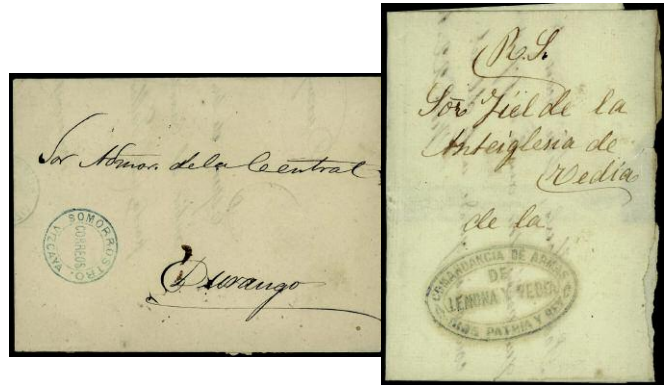 Sor Admor. de la Central
SOMORROSTRO
CORREOS
VIZCAYA
Durango
R. S.
Sor Fiel de la
Anteiglesia de
Vedia
de la
COMANDANCIA DE ARMAS
DE
LEMONA Y VEDIA
DIOS PATRIA Y REY